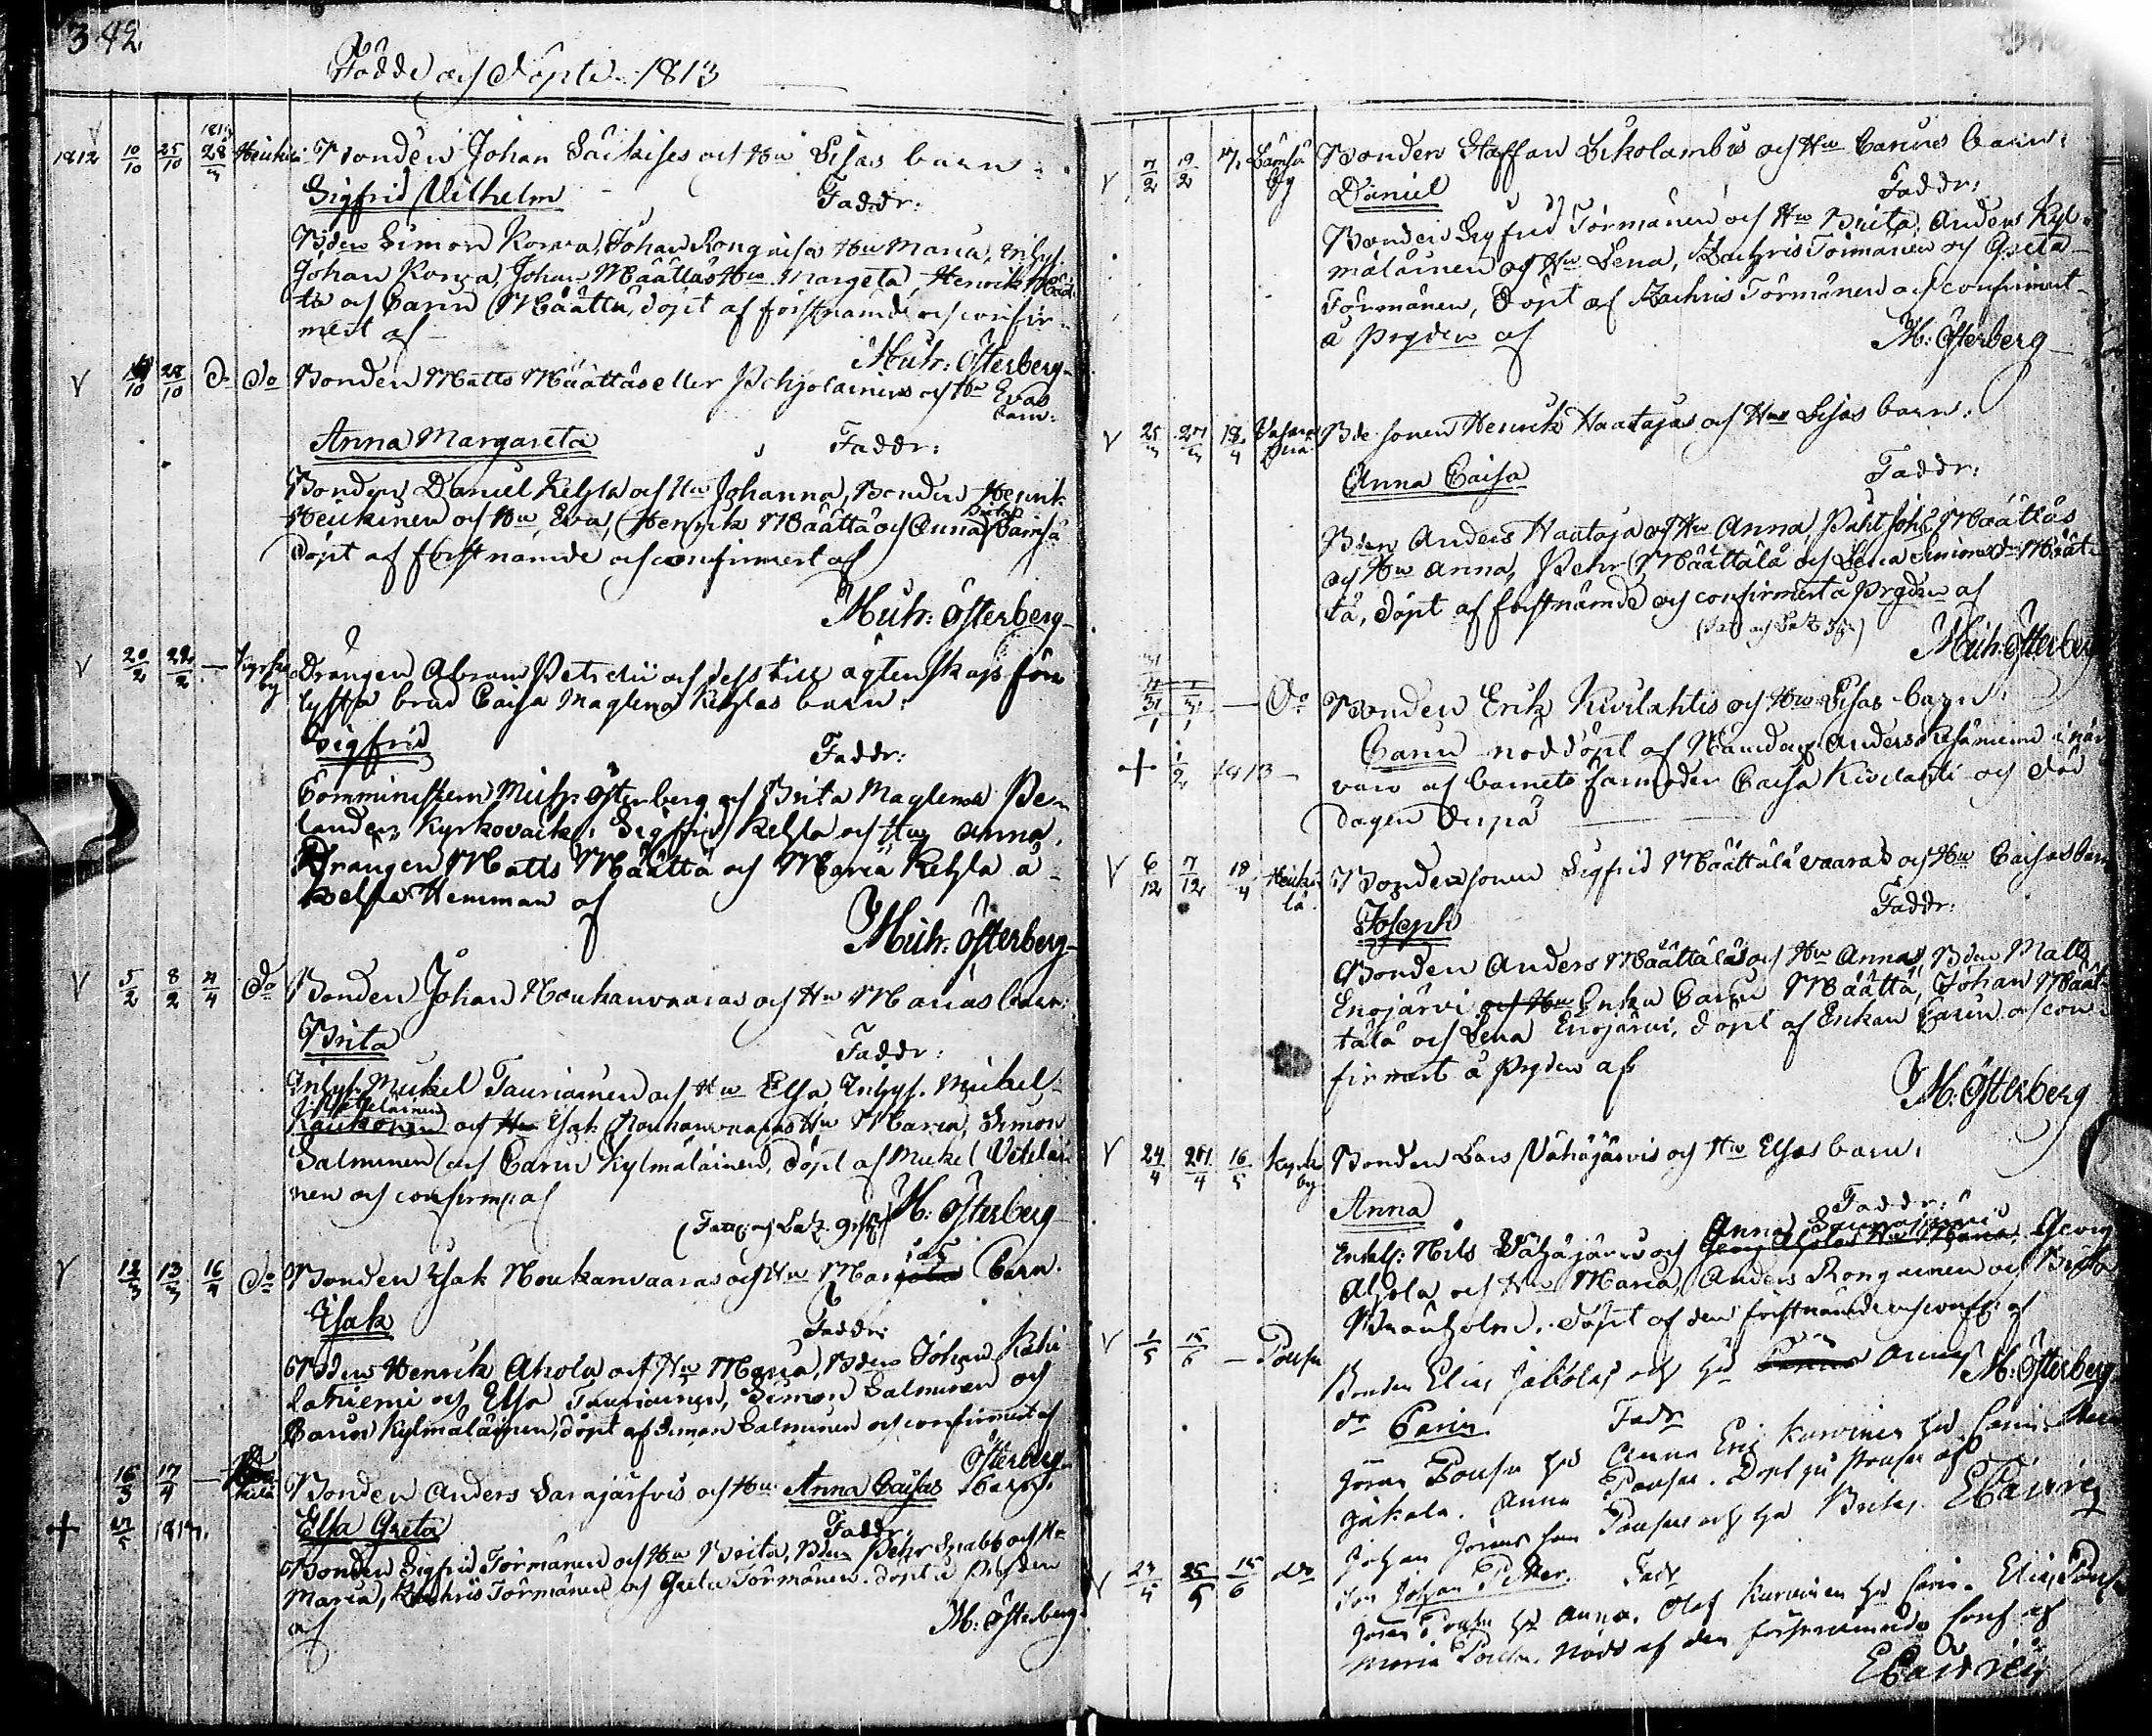 342
Födde och Döpte 1813
1812 10/10 25/10 1813 28/3 Bonden Johan Säckises och Hu Lisas barn:
Sigfrid Wilhelm Faddr:
Bden Simon Korva, Johan Hu Maria, Inhys.
Johan Korva, Johan Määttäs Hu Margeta, Henrik Määt
tä och Carin Määttä, döpt af förstnämde och confir-
merat af
Mich: Österberg
V 28/10 Do Bonden Matts Määttäs eller Pohjolainens och Hu Evas
barn:
Anna Margareta Faddr:
Bonden Daniel Kehla och Hu Johanna, Bonden Henrik
Heickinen och Hu Eva, Henrik Määttä och Anna
döpt af förstnämde och confirmerat af
Mich: Österberg
V 20/2 22/2 — Kyrko Drängen Abram Petrelii och dess till ägtenskap förr
by lysta brud Caisa Maglena Kehlas barn:
Sigfrid Faddr:
Comministern Mich: Österberg och Brita Maglena
Kyrkovärk: Sigfrid Kehla och Hu Anna,
Drängen Matts Määttä och Maria Kehla å
Kehla Hemman af
Mich: Österberg
V 5/2 8/2 4/4 Do Bonden Johan Moukanvaaras och Hu Marias barn:
Brita Faddr:
Inhys. Mickel Tauriainen och Hu Elsa, Inhys. Mickel
och Isak Moukanvaaras Hu Maria, Simon
Salminen och Carin Kylmäläinen, döpt af Mickel Veteläi
nen och confirm: af
M: Österberg
V 12/3 13/3 16/4 Do Bonden Isak Moukanvaaras och Hu Marias Barn.
Isak Faddr:
Bden Henrik Ahola och Hu Maria, Bden Johan
och Elsa Tauriainen, Simon Salminen och
Carin Kylmäläinen, döpt af Simon Salminen och confirmerat af
Österberg
15/3 17/4 — Bonden Anders Sarajärfvis och Hu Anna Caisas Barn.
+ 1813. Elsa Greta Faddr:
Bonden Sigfrid Törmänen och Hu Brita, Bden Pehr Snabb och Hu
Maria, Zachris Törmänen och Greta Törmänen. döpt å Prgden
af M: Österberg
V 7/2 12/2 by Bonden Staffan Lukolambis och Hu Carins barn:
Daniel Faddr:
Bonden Sigfrid Törmänen och Hu Brita, Anders Kyl
mäläinen och Hu Lena, Zachris Törmänen och Greta
Törmänen, Döpt af Zachris Törmänen och confirmerat
å Prgden af
M: Österberg
V 25/3 27/3 18/4 Bde sonen Henrik Haatajas och Hus Lisas barn:
Anna Caisa Faddr:
Bden Anders Haataja och Hu Anna, Määttäs
och Hu Anna, Pehr Määttälä och Lena Simonsdr Määt
tä, döpt af förstnämde och confirmerat å Prgden af
Mich: Österberg
31/1 31/1 — Do Bonden Erik Kivilahtis och Hu Lisas barn:
+ 1/2 1813 — Carin nöddöpt af Nämdem: Anders i när
varo af barnets farmoder Caisa Kivilahti och död
dagen derpå
V 6/12 7/12 18/4 Heicki Bondesonen Sigfrid Määttälävaaras och Hu Caisas barn
lä Joseph Faddr:
Bonden Anders Määttäläs och Hu Anna, Bden Matts
Enojärvi och Hu Enkan Carin Määttä, Johan Määt
tälä och Lena Enojärvi, döpt af Enkan Carin och con
firmerat å Prgden af
M: Österberg
V 24/4 16/5 Kyrko Bonden Lars Vähäjärvis och Hu Elsas barn:
by Anna Faddr:
Nils Vähäjärvi och Anna Georg
Ahola och Hu Maria, Anders Ronquinen och Brita
döpt af den förstnämde och conf: af
M: Österberg
V 1/5 15/6 — Pousu Bonden Elias Jakolas och Hu Annas
dr Carin Fadr
Jöran Pousu Hu Anna Eric Kurvinen Hu Carin
Jakola. Anna Pousu. Döpt på Pousu af
E Cairén
V 23/5 25/5 15/6 do Johan Pousus och Hu Britas
son Johan Petter. Fadr
Jöran Pousu Hu Anna. Olof Kurvinen Hu Carin. Elias Pousu
Maria Pousu. Nödd af den förstnämnde Conf af
E Cairén